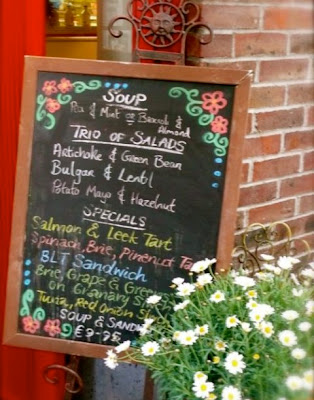 SOUP
Pea & Mint or Broccoli &
Almond
TRIO OF SALADS
Artichoke & Green Bean
Bulgar & Lentil
Potato Mayo & Hazelnut
SPECIALS
Salmon & Leek Tart
Spinach, Brie, Pinenut
BLT Sandwich
Brie, Grape & Green
on Granary
Tuna, Red Onion
SOUP &